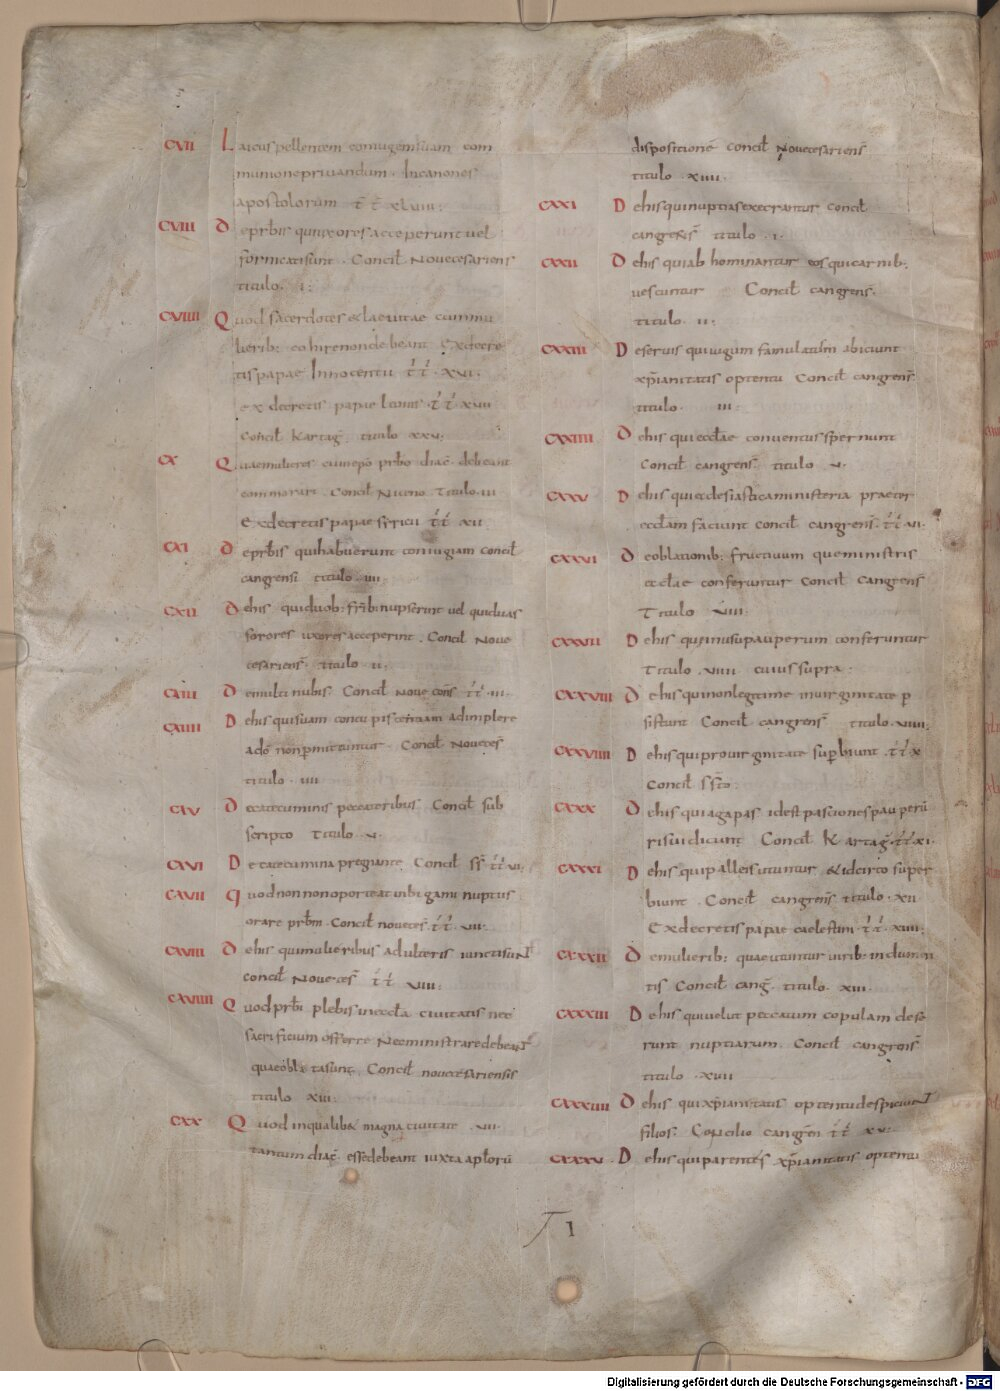 CVII Laicus pellentem coniugem suam com
munione priuandum. In canones
apostolorum t̄ t̄ xlviii:
CVIII De prb̄is qui uxores acceperunt uel
fornicati sunt. Concil̄ Novecesariens
titulo. i:
CVIIII Quod sacerdotes & laeuitae cum mu
lierib: cohire non debeant. Ex decre
tis papae Innocentii t̄t̄. xvi.
ex decretis papae leonis t̄t̄ xviii
Concil̄ Kartaḡ. titulo xxv:
CX Quae mulieres cum ep̄o prb̄o diac̄. debeant
commorari. Concil̄ Niceno Titulo. iii
Ex decretis papae siricii t̄t̄ xii.
CXI De prb̄is qui habuerunt coniugiam concil̄
cangrensi titulo. iiii.
CXII De his qui duob: fr̄ib: nupserint uel qui duas
sorores uxores acceperint. Concil̄ Nove
cesariens̄. titulo ii:
CXIII De multinubis. Concil̄ Nove cens̄ t̄t̄. iii.
CXIIII De his qui suam concupiscentiam adimplere
a dō non permittuntur. Concil̄ Noveces̄
titulo. iiii
CXV De catecuminis peccatoribus Concil̄ sub
scripto Titulo. v.
CXVI De catecumina pregnante Concil̄ ss̄. t̄t̄. vi.
CXVII Quod non non oporteat in bigami nuptiis
orare prb̄m. Concil̄ noveces̄. t̄t̄. vii.
CXVIII De his qui mulieribus adulteris iuncti sunt
concil̄ Noveces̄ t̄t̄ viii:
CXVIIII Quod prb̄i plebis in eccl̄a ciuitatis nec
sacrificium offerre Nec ministrare debeant
quae oblata sunt. Concil̄ novecesariensis
titulo xiii:
CXX Quod in qualib& magna ciuitate. vii.
tantum diac̄. esse debeant iuxta apl̄orū
dispositionē concil̄ Novecesariens̄
titulo. xiiii.
CXXI De his qui nuptias execrantur concil̄
cangrens̄ titulo. i.
CXXII De his qui abhominantur eos qui carnib:
uescuntur Concil̄ cangrens̄.
titulo ii:
CXXIII De seruis qui iugum famulatus abiciunt
xp̄ianitatis optentu Concil̄ cangrens̄
titulo. iii:
CXXIIII De his qui eccl̄ae conuentus spernunt
Concil̄ cangrens̄. titulo v.
CXXV De his qui ecclesiastica ministeria praeter
eccl̄am faciunt concil̄ cangrens̄. t̄t̄. vi:
CXXVI De oblationib: fructuum que ministris
eccl̄ae conferuntur Concil̄ Cangrens̄
Titulo viii:
CXXVII De his que in usu pauperum conferuntur
Titulo. viiii cuius supra:
CXXVIII De his qui non legitime in uirginitate p
sistunt Concil̄ cangrens̄ titulo. viiii.
CXXVIIII De his qui pro uirginitate supbiunt. t̄t̄ x
Concil̄ ss̄to:
CXXX De his qui agapas id est pasciones pauperū
risui dicunt Concil̄ Kartag̃. t̄t̄ xi.
CXXXI De his qui palleis utuntur & idcirco super
biunt. Concil̄ cangrens̄ titulo. xii
Ex decretis papae caelestini. t̄t̄. xiii:
CXXXII De mulierib: quae utuntur uirib: indumen
tis Concil̄ cang̃. titulo. xiii.
CXXXIII De his qui uelut peccatum copulam dese
runt nuptiarum. Concil̄ cangrens̄
titulo. xviii
CXXXIIII De his qui xp̄ianitatis optentu despiciunt
filios. Concilio cangren̄ t̄t̄ xv:
CXXXV De his qui parentes xp̄ianitatis optentu
I
Digitalisierung gefördert durch die Deutsche Forschungsgemeinschaft - DFG